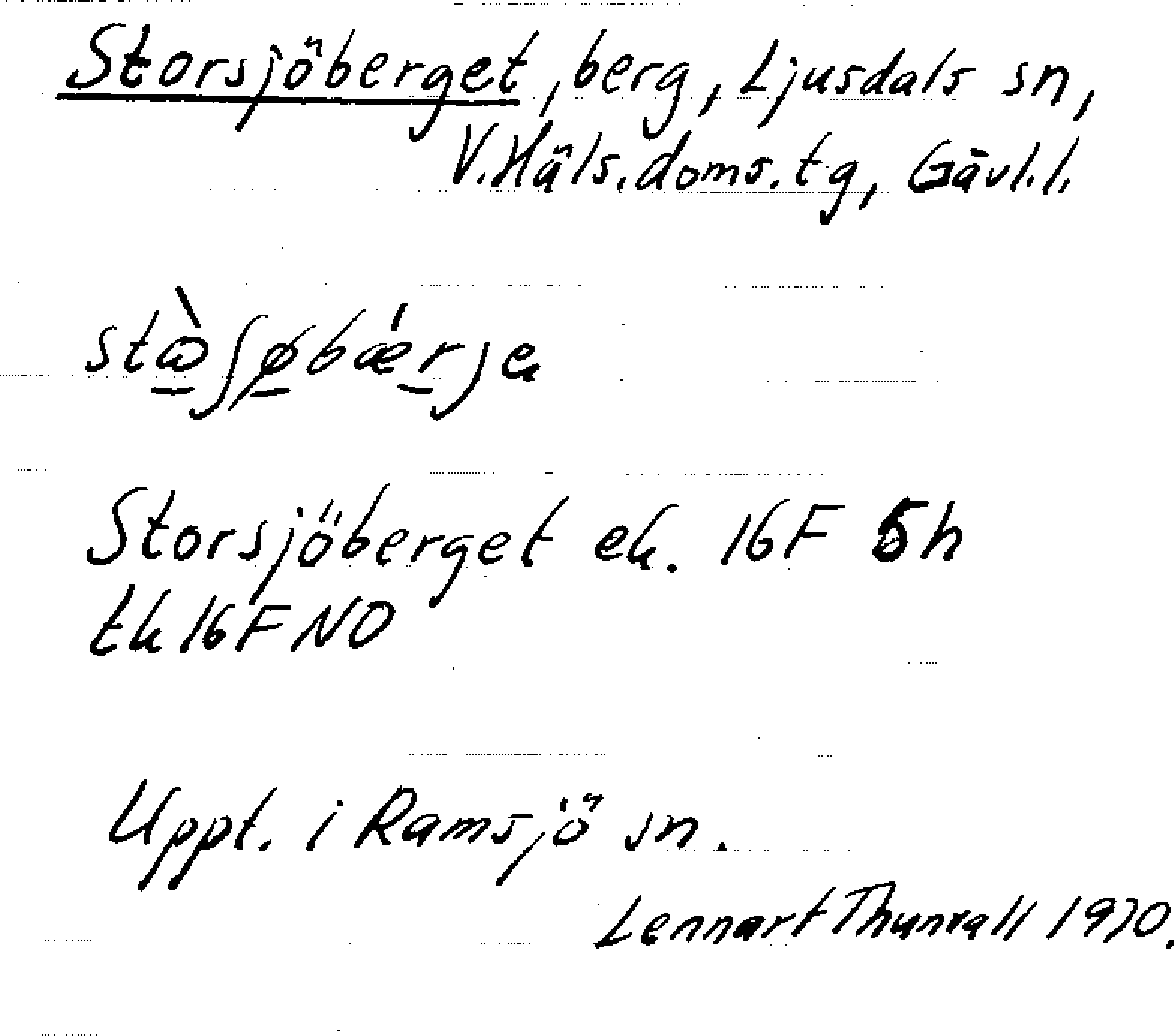 Storsjöberget, berg, Ljusdals sn,
V.Häls.doms.tg, Gävl.l.
Storsjöberget ek. 16F 5h
tk 16F NO
Uppt. i Ramsjö sn.
Lennart Thunvall 1970.